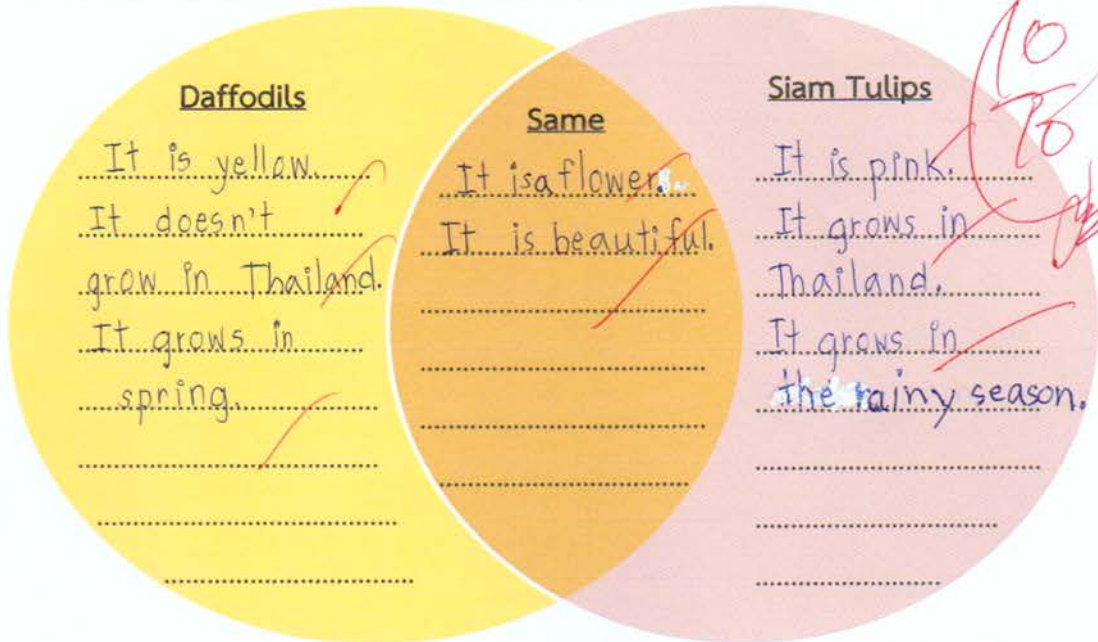 Daffodils
It is yellow.
It doesn't
grow in Thailand.
It grows in
spring.
Same
It is a flower.
It is beautiful.
Siam Tulips
It is pink.
It grows in
Thailand.
It grows in
the rainy season.
10
10